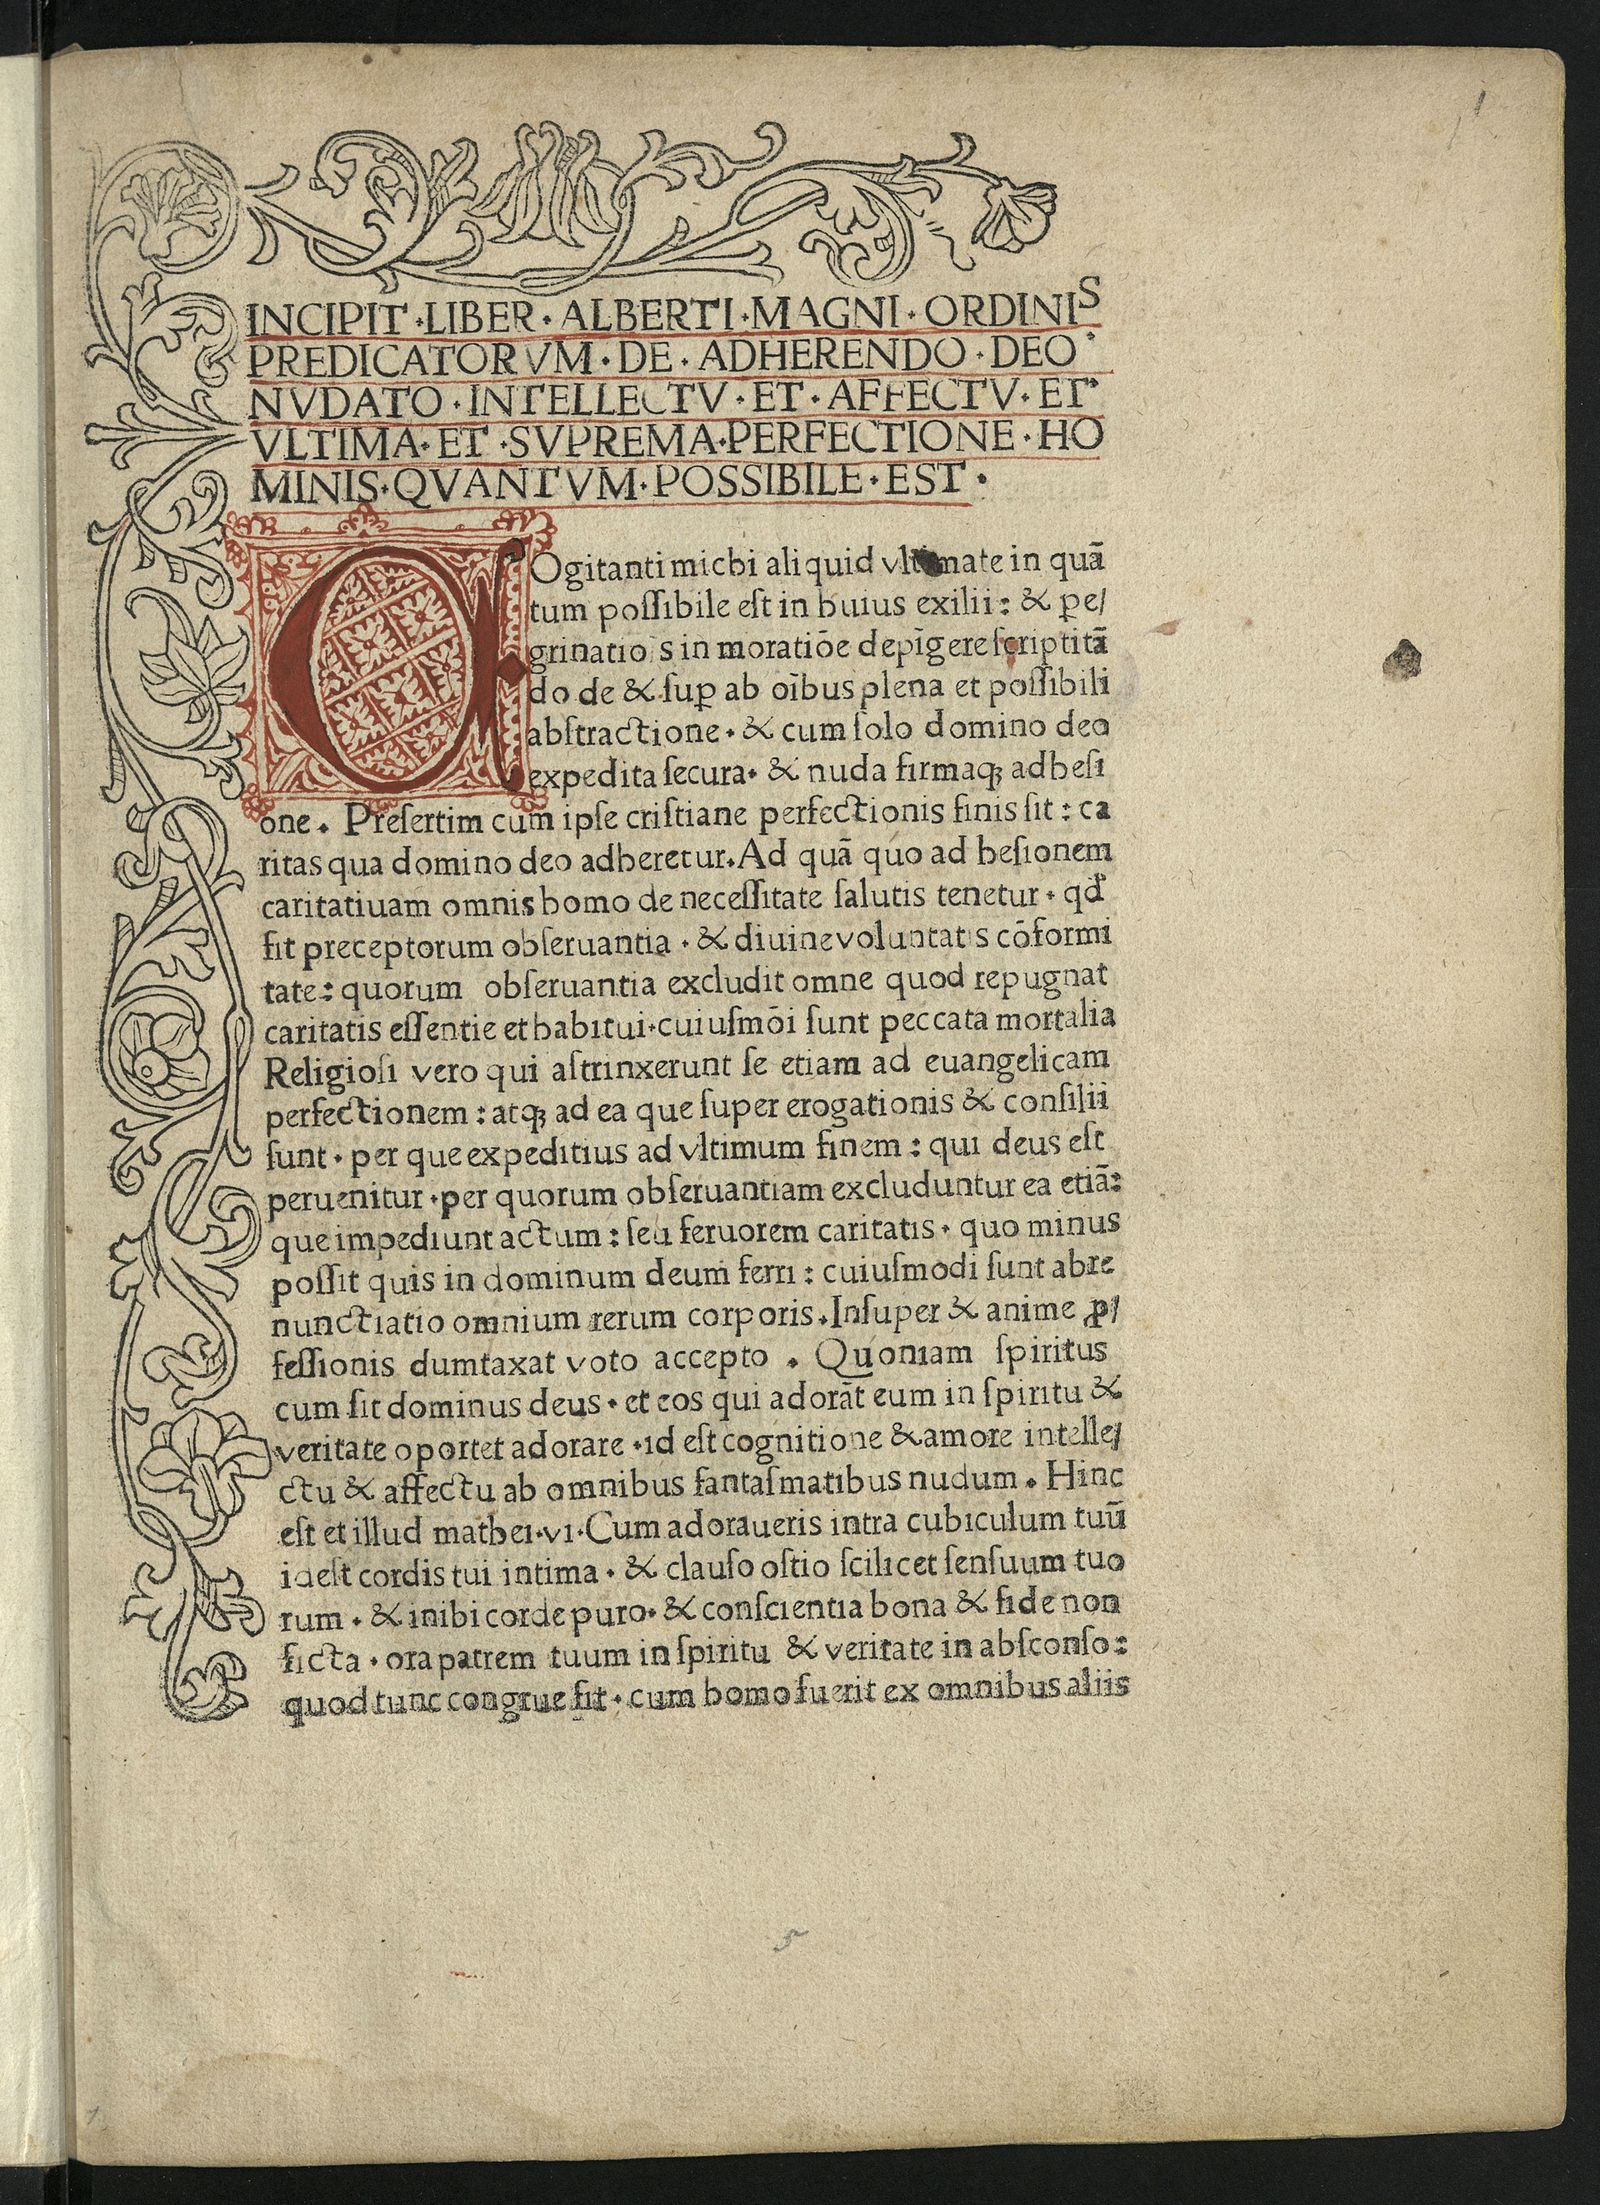 1
INCIPIT · LIBER · ALBERTI · MAGNI · ORDINIS
PREDICATORVM · DE · ADHERENDO · DEO ·
NVDATO · INTELLECTV · ET · AFFECTV · ET
VLTIMA · ET · SVPREMA · PERFECTIONE · HO
MINIS · QVANTVM · POSSIBILE · EST ·
COgitanti michi aliquid vltimate in quā
tum poſſibile eſt in huius exilii: & ꝑe/
grinatiois in moratiōe depīgere ſcriptitā
do de & ſuꝑ ab oībus plena et poſſibili
abſtractione · & cum ſolo domino deo
expedita ſecura · & nuda firmaqꝫ adheſi
one . Preſertim cum ipſe criſtiane perfectionis finis ſit : ca
ritas qua domino deo adheretur. Ad quā quo ad heſionem
caritatiuam omnis homo de neceſſitate ſalutis tenetur · qd
fit preceptorum obſeruantia · & diuine voluntatis cōformi
tate: quorum obſeruantia excludit omne quod repugnat
caritatis eſſentie et habitui · cuiuſmōi ſunt peccata mortalia
Religioſi vero qui aſtrinxerunt ſe etiam ad euangelicam
perfectionem : atqꝫ ad ea que ſuper erogationis & conſilii
ſunt · per que expeditius ad vltimum finem : qui deus eſt
peruenitur · per quorum obſeruantiam excluduntur ea etiā:
que impediunt actum : ſeu feruorem caritatis · quo minus
poſſit quis in dominum deum ferri : cuiuſmodi ſunt abre
nunctiatio omnium rerum corporis . Inſuper & anime ꝓ/
feſſionis dumtaxat voto accepto . Quoniam ſpiritus
cum ſit dominus deus · et eos qui adorāt eum in ſpiritu &
veritate oportet adorare · id eſt cognitione & amore intelle/
ctu & affectu ab omnibus fantaſmatibus nudum . Hinc
eſt et illud mathei · vi · Cum adoraueris intra cubiculum tuū
id eſt cordis tui intima · & clauſo oſtio ſcilicet ſenſuum tuo
rum · & inibi corde puro · & conſcientia bona & fide non
ficta · ora patrem tuum in ſpiritu & veritate in abſconſo :
quod tunc congrue fit · cum homo fuerit ex omnibus aliis
5